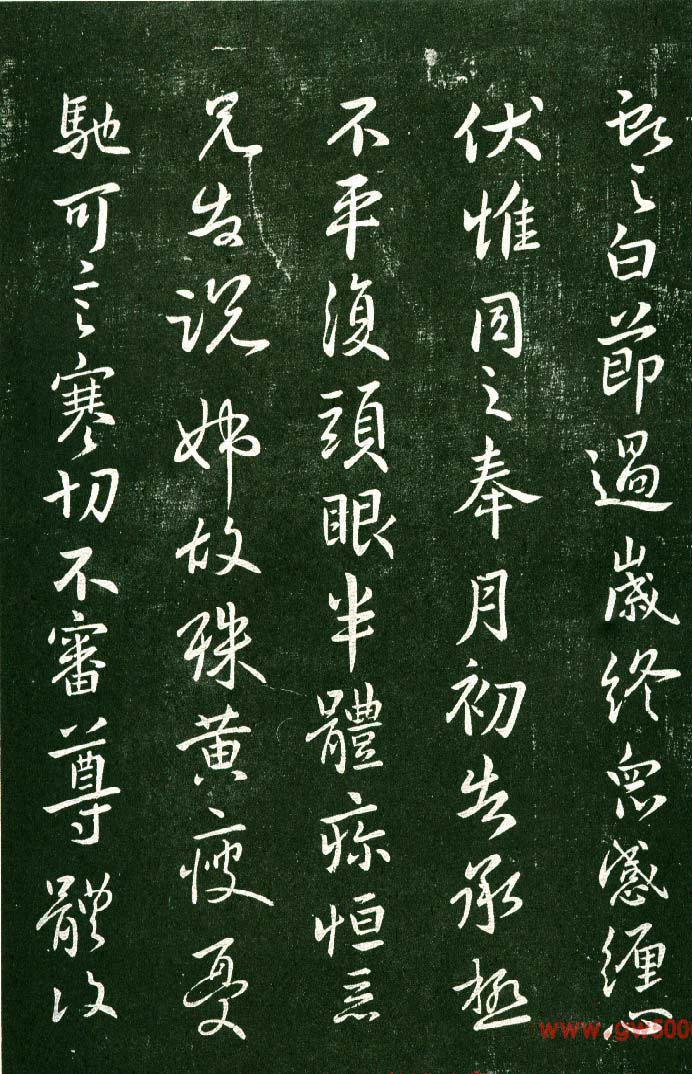 獻之白節過歲終眾感纏心
伏惟同之奉月初告承極
不平復頭眼半體疼恒
兄告說姊故殊黃瘦憂
馳可言寒切不審尊體復
www.gw500